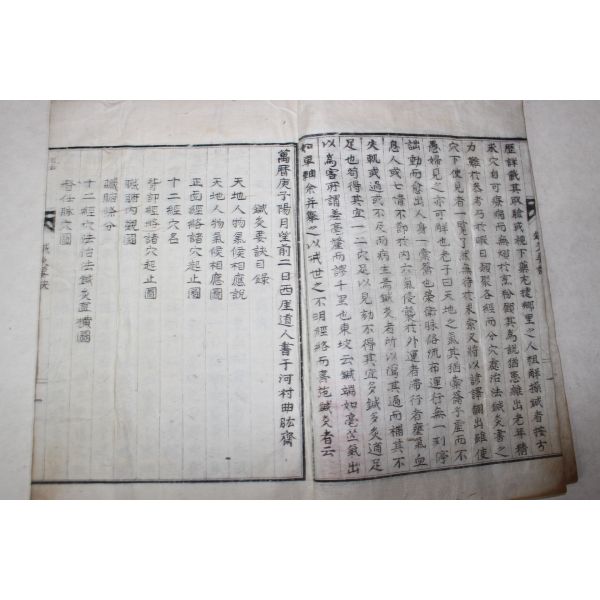 歷詳載其取驗或視下藥尤捷鄉里之人粗解操鍼者按方
求穴自可療病而無煩於查檢顧其爲說猶患雜出老年精
力難於參考乃於暇日類聚各經而分穴處治法鍼灸書之
穴下使見者一覽了然無待於求索又將以諺譯飜出雖使
愚婦見之亦可解也老子曰天地之氣其猶橐籥乎虛而不
詘動而愈出人身一橐籥也榮衛脉絡流布運行無一刻停
息人或七情不節於內六氣侵襲於外運者滯行者壅氣血
失軌或過或不及而病生焉鍼灸者所以瀉其過而補其不
足也苟得其宜一二穴足以見効不得其宜多鍼多灸適足
以爲害所謂差毫釐而謬千里也東坡云鍼端如毫芒氣出
如車軸余幷擧之以戒世之不明經絡而妄施鍼灸者云
萬曆庚子陽月望前二日西厓道人書于河村曲肱齋
鍼灸要訣目錄
天地人物氣候相應說
天地人物氣候相應圖
正面經絡諸穴起止圖
背部經絡諸穴起止圖
十二經穴名
臟腑內觀圖
臟腑絡分
十二經穴法治法鍼灸直橫圖
督任脉穴圖